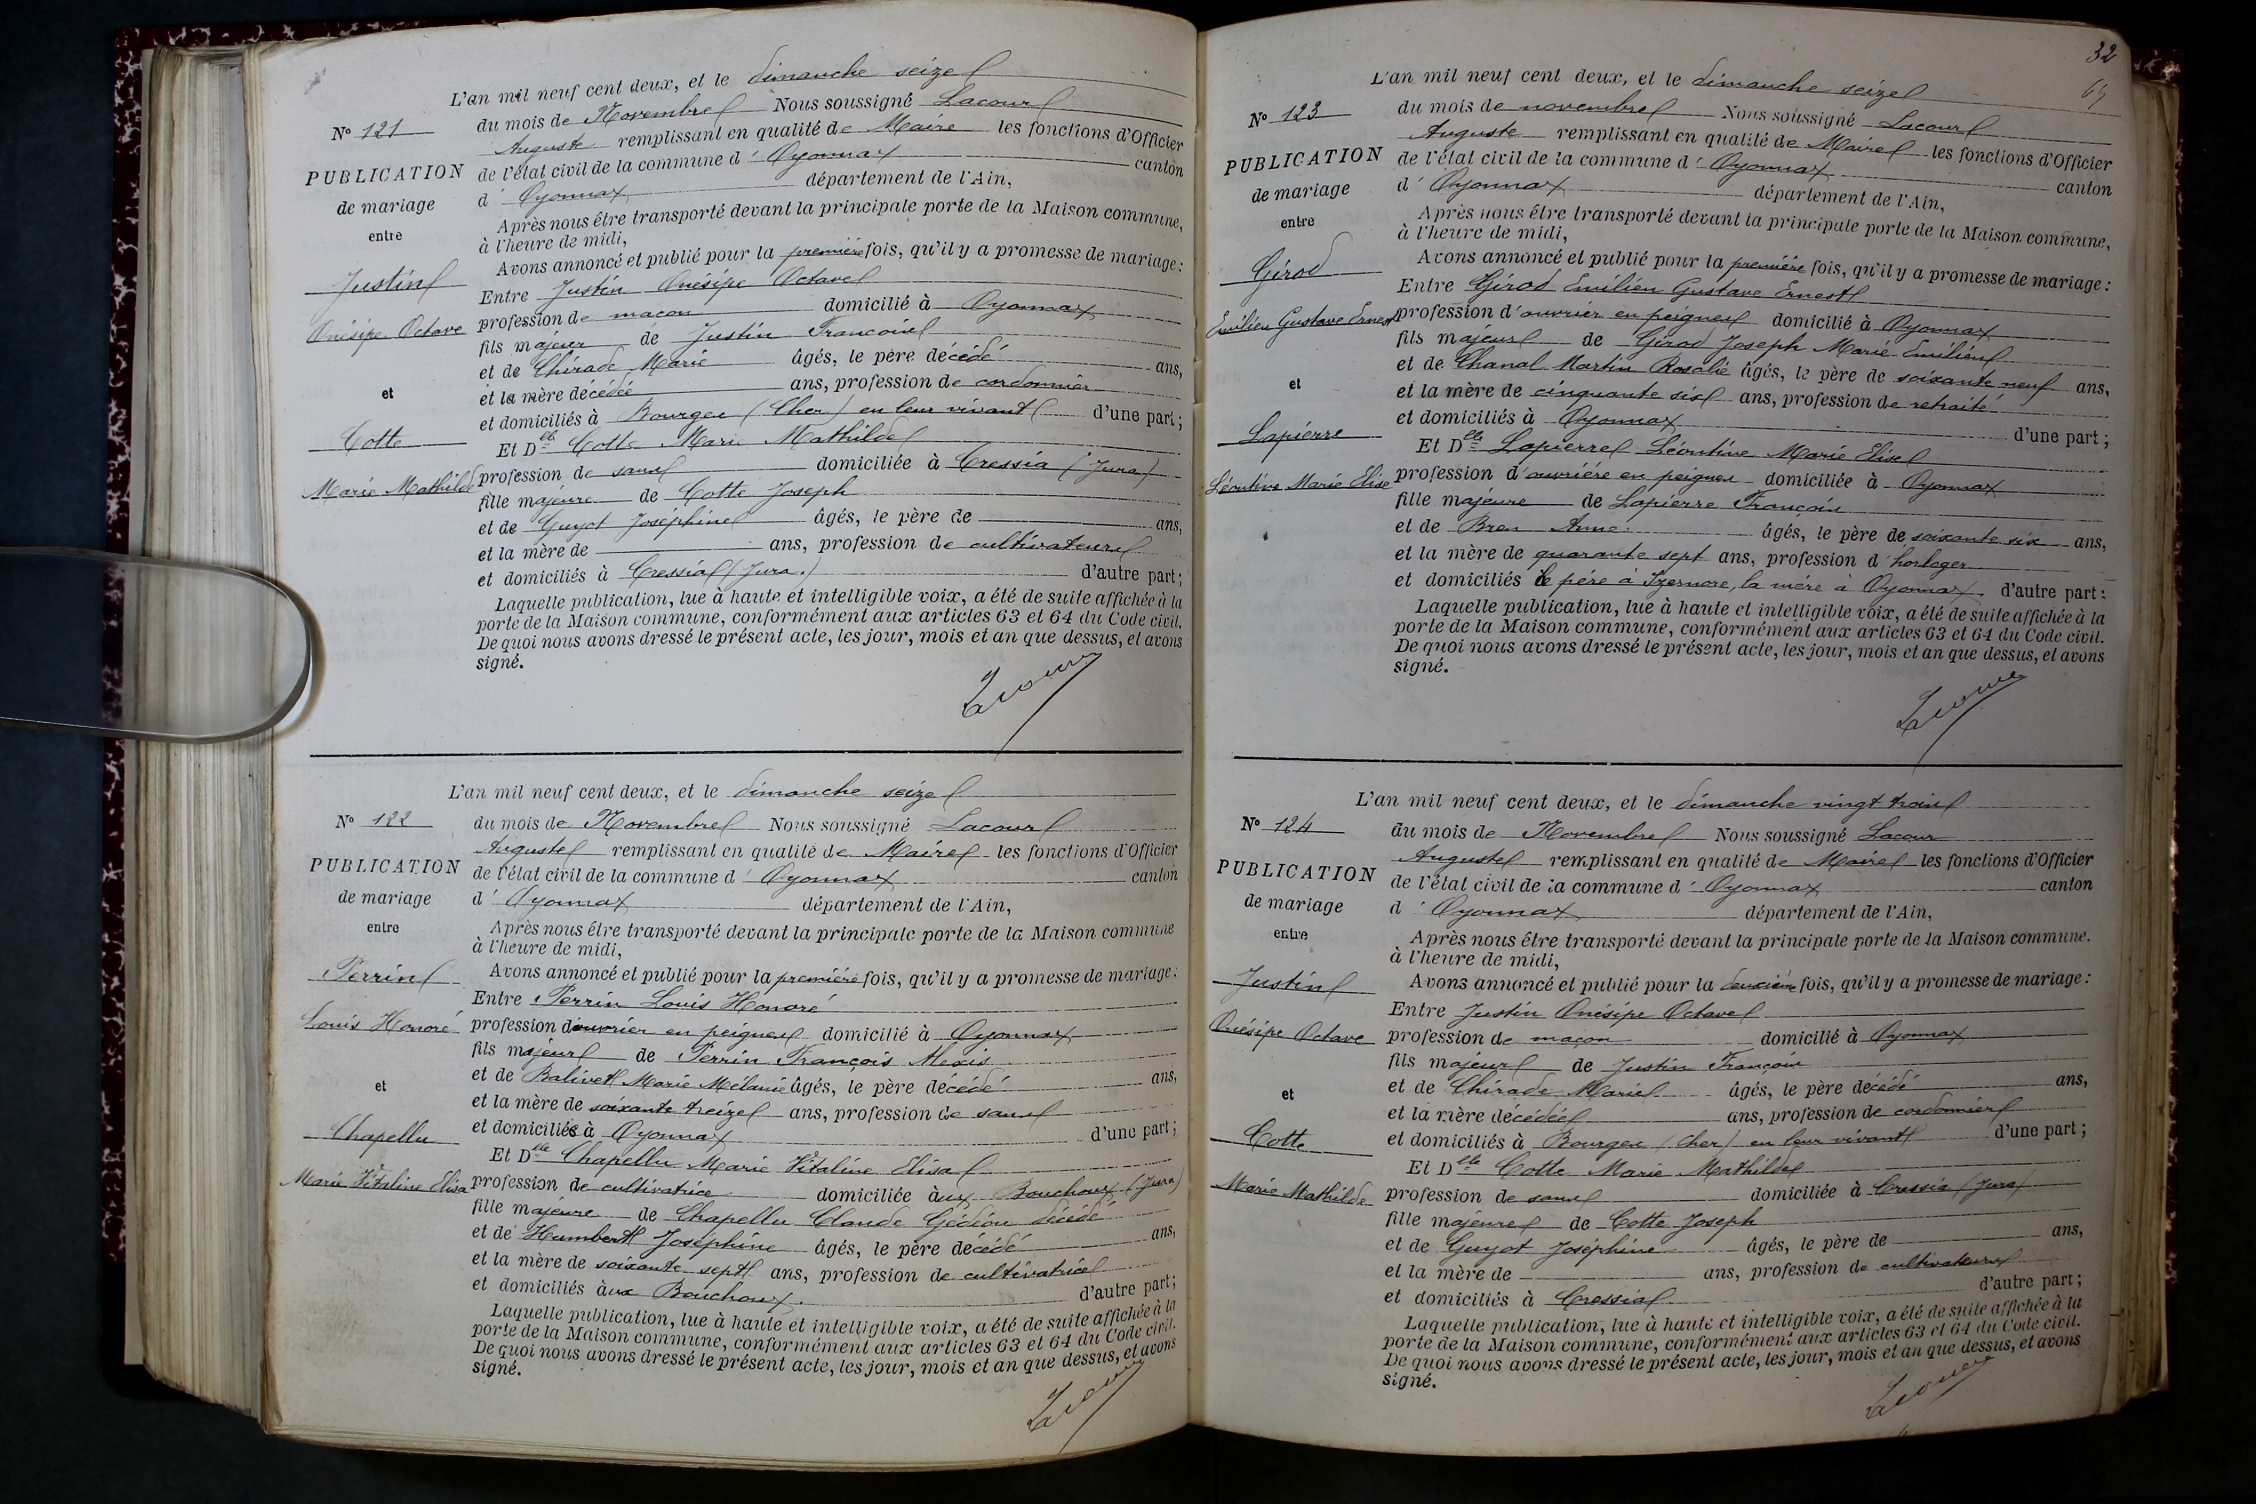 L'an mil neuf cent deux, et le dimanche seize
N° 121
du mois de Novembre Nous soussigné Lacour
Auguste remplissant en qualité de Maire les fonctions d'Officier
PUBLICATION
de l'état civil de la commune d' Oyonnax canton
d' Oyonnax département de l'Ain,
de mariage
Après nous être transporté devant la principale porte de la Maison commune,
entre
à l'heure de midi,
Avons annoncé et publié pour la première fois, qu'il y a promesse de mariage :
Justin
Entre Justin Onésipe Octave
profession de maçon domicilié à Oyonnax
Onésipe Octave
fils majeur de Justin François
et de Chirade Marie âgés, le père décédé ans,
et
et la mère décédée ans, profession de cordonnier
et domiciliés à Bourges (Cher) en leur vivant d'une part ;
Cotte
Et Dlle Cotte Marie Mathilde
profession de sans domiciliée à Cressia (Jura)
Marie Mathilde
fille majeure de Cotte Joseph
et de Guyot Joséphine âgés, le père de ans,
et la mère de ans, profession de cultivateurs
et domiciliés à Cressia (Jura.) d'autre part ;
Laquelle publication, lue à haute et intelligible voix, a été de suite affichée à la
porte de la Maison commune, conformément aux articles 63 et 64 du Code civil.
De quoi nous avons dressé le présent acte, les jour, mois et an que dessus, et avons
signé.
Lacour
L'an mil neuf cent deux, et le dimanche seize
N° 122
du mois de Novembre Nous soussigné Lacour
Auguste remplissant en qualité de Maire les fonctions d'Officier
PUBLICATION
de l'état civil de la commune d' Oyonnax canton
de mariage
d' Oyonnax département de l'Ain,
entre
Après nous être transporté devant la principale porte de la Maison commune
à l'heure de midi,
Perrin
Avons annoncé et publié pour la première fois, qu'il y a promesse de mariage :
Entre Perrin Louis Honoré
Louis Honoré
profession d'ouvrier en peignes domicilié à Oyonnax
fils majeur de Perrin François Alexis
et
et de Balivet Marie Mélanie âgés, le père décédé ans,
et la mère de soixante treize ans, profession de sans
Chapellu
et domiciliés à Oyonnax d'une part ;
Et Dlle Chapellu Marie Vitaline Elisa
Marie Vitaline Elisa
profession de cultivatrice domiciliée aux Bouchoux (Jura)
fille majeure de Chapellu Claude Gédéon décédé
et de Humbert Joséphine âgés, le père décédé ans,
et la mère de soixante sept ans, profession de cultivatrice
et domiciliés aux Bouchoux. d'autre part ;
Laquelle publication, lue à haute et intelligible voix, a été de suite affichée à la
porte de la Maison commune, conformément aux articles 63 et 64 du Code civil.
De quoi nous avons dressé le présent acte, les jour, mois et an que dessus, et avons
signé.
Lacour
32
63
L'an mil neuf cent deux, et le dimanche seize
N° 123
du mois de novembre Nous soussigné Lacour
Auguste remplissant en qualité de Maire les fonctions d'Officier
PUBLICATION
de l'état civil de la commune d' Oyonnax canton
de mariage
d' Oyonnax département de l'Ain,
entre
Après nous être transporté devant la principale porte de la Maison commune,
à l'heure de midi,
Girod
Avons annoncé et publié pour la première fois, qu'il y a promesse de mariage :
Entre Girod Emilien Gustave Ernest
Emilien Gustave Ernest
profession d'ouvrier en peignes domicilié à Oyonnax
fils majeur de Girod Joseph Marie Emilien
et
et de Chanal Martin Rosalie âgés, le père de soixante neuf ans,
et la mère de cinquante six ans, profession de retraité
et domiciliés à Oyonnax d'une part ;
Lapierre
Et Dlle Lapierre Léontine Marie Elise
Léontine Marie Elise
profession d'ouvrière en peignes domiciliée à Oyonnax
fille majeure de Lapierre François
et de Bren Anne âgés, le père de soixante six ans,
et la mère de quarante sept ans, profession d'horloger
et domiciliés le père à Izernore, la mère à Oyonnax. d'autre part :
Laquelle publication, lue à haute et intelligible voix, a été de suite affichée à la
porte de la Maison commune, conformément aux articles 63 et 64 du Code civil.
De quoi nous avons dressé le présent acte, les jour, mois et an que dessus, et avons
signé.
Lacour
L'an mil neuf cent deux, et le dimanche vingt trois
N° 124
du mois de Novembre Nous soussigné Lacour
Auguste remplissant en qualité de Maire les fonctions d'Officier
PUBLICATION
de l'état civil de la commune d' Oyonnax canton
de mariage
d' Oyonnax département de l'Ain,
entre
Après nous être transporté devant la principale porte de la Maison commune.
à l'heure de midi,
Justin
Avons annoncé et publié pour la deuxième fois, qu'il y a promesse de mariage :
Entre Justin Onésipe Octave
Onésipe Octave
profession de maçon domicilié à Oyonnax
fils majeur de Justin François
et
et de Chirade Marie âgés, le père décédé ans,
et la mère décédée ans, profession de cordonnier
Cotte
et domiciliés à Bourges (Cher) en leur vivant d'une part ;
Et Dlle Cotte Marie Mathilde
Marie Mathilde
profession de sans domiciliée à Cressia (Jura)
fille majeure de Cotte Joseph
et de Guyot Joséphine âgés, le père de ans,
et la mère de ans, profession de cultivateurs
et domiciliés à Cressia d'autre part ;
Laquelle publication, lue à haute et intelligible voix, a été de suite affichée à la
porte de la Maison commune, conformément aux articles 63 et 64 du Code civil.
De quoi nous avons dressé le présent acte, les jour, mois et an que dessus, et avons
signé.
Lacour